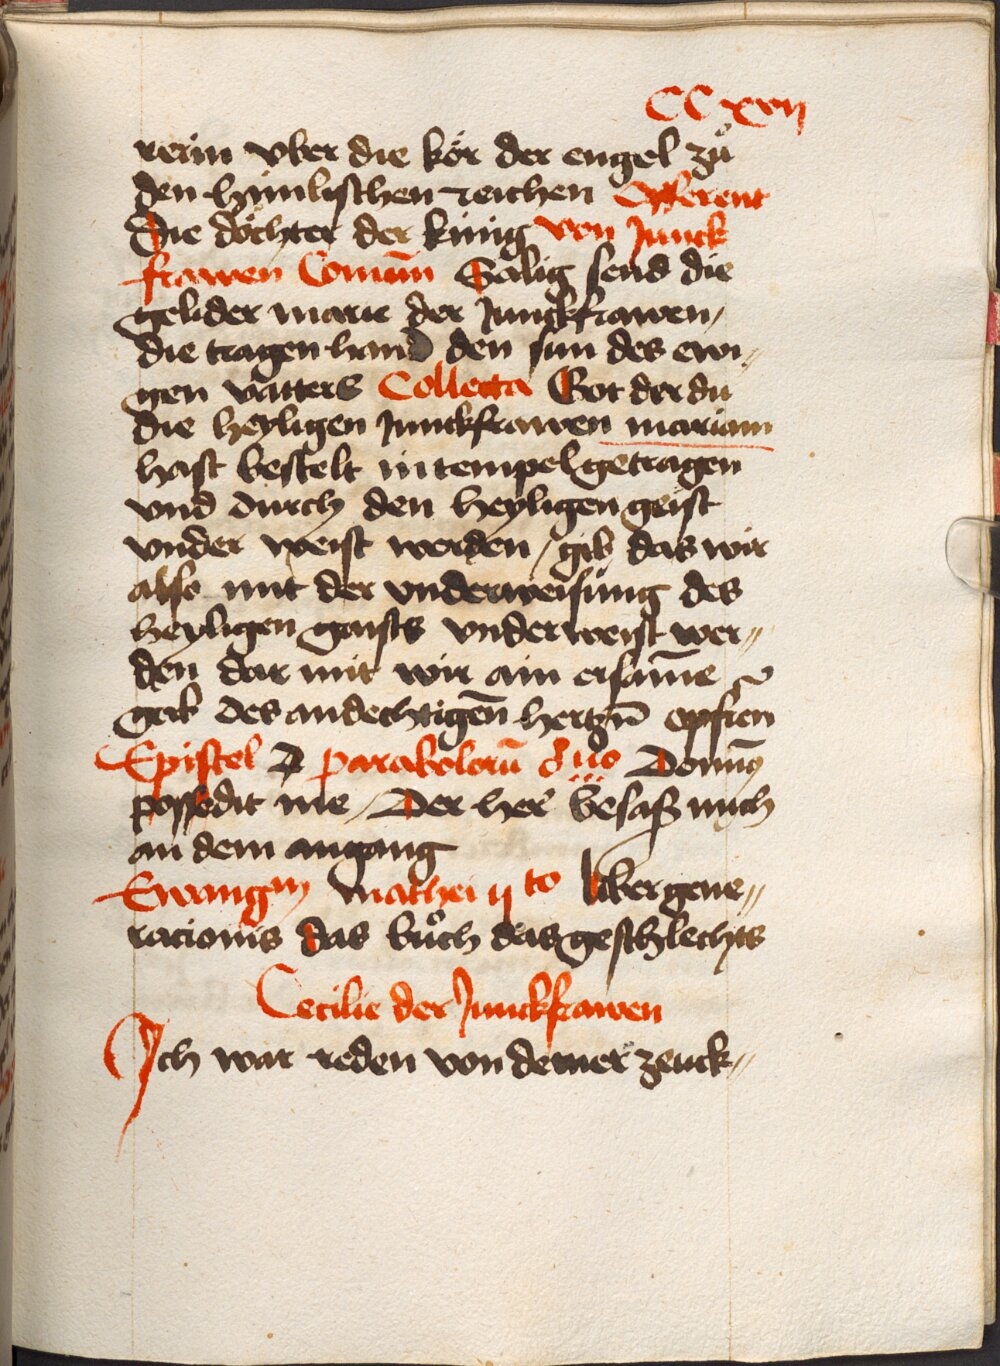 CCxvij
rerin vber die kör der engel zů
den himlischen reichen Offerent
Die döchter der künig von Junck
frawen Comūm Sälig send die
gelider marie der Junckfrawen,
die tragen hand den sun des ewi„
gen vatters Collecta Got der du
die heyligen Junckfrawen mariam
hast bestelt in tempel getragen
vnd durch den heyligen geist
vnder weist werden / gib das wir
also mit der vnderweisung des
heyligen gaists vnderweist wer„
den dar mit wir ain ersame
gab des andechtigen hertzn̄ opfren
Epistel parabolorū Domin9
possedit me / Der her besaß mich
an dem angang
Ewangm mathei ij to liber gene„
racionis das bůch das geschlechts
Cecilie der Junckfrawen
Ich war reden von deiner zeuck„